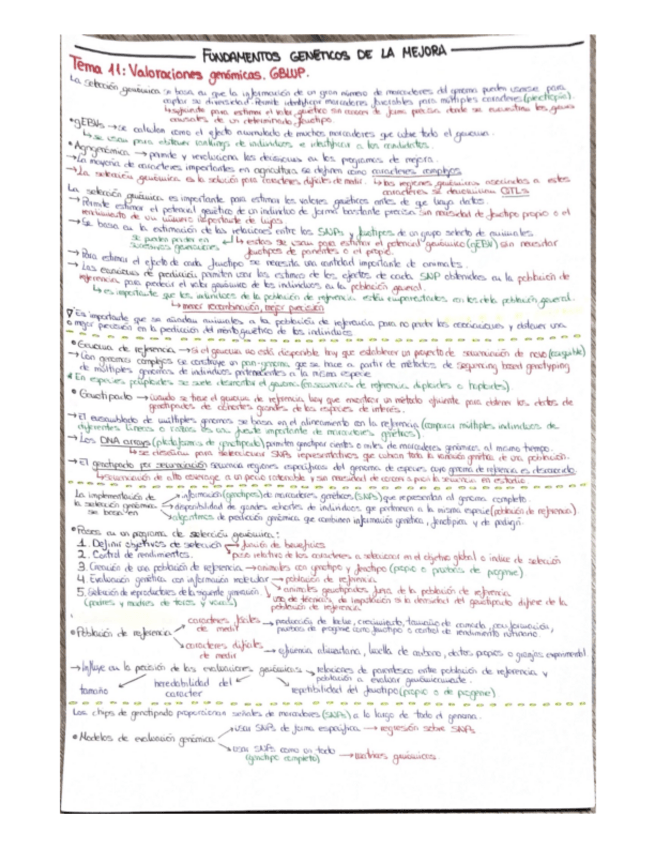 FUNDAMENTOS GENÉTICOS DE LA MEJORA
Tema 11: Valoraciones genómicas. GBLUP.
La selección genómica se basa en que la información de un gran número de marcadores del genoma pueden usarse para
captar su diversidad. Permite identificar marcadores favorables para múltiples caracteres (pleiotropía).
causales de un determinado fenotipo.
• gEBVs → se calculan como el efecto acumulado de muchos marcadores que cubre todo el genoma.
↳ se usan para obtener rankings de individuos e identificar a los candidatos.
• Agrogenómica → permite y revoluciona las decisiones en los programas de mejora.
→ La mayoría de caracteres importantes en agricultura se definen como caracteres complejos
→ La selección genómica es la solución para caracteres difíciles de medir. ↳ las regiones genómicas asociadas a estos
caracteres se denominan QTLs
La selección genómica es importante para estimar los valores genéticos antes de que haya datos.
→ Permite estimar el potencial genético de un individuo de forma bastante precisa sin necesidad de fenotipo propio o el
rendimiento de un número importante de hijas.
→ Se basa en la estimación de las relaciones entre los SNPs y fenotipos de un grupo selecto de animales.
se pueden perder en
sucesivas generaciones
↳ estos se usan para estimar el potencial genómico (gEBV) sin necesitar
fenotipos de parientes o el propio.
→ Para estimar el efecto de cada fenotipo se necesita una cantidad importante de animales.
→ Las ecuaciones de predicción permiten usar los estimas de los efectos de cada SNP obtenidos en la población de
referencia, para predecir el valor genómico de los individuos en la población general.
↳ es importante que los individuos de la población de referencia estén emparentados con los de la población general.
↳ menor recombinación, mejor precisión
Es importante que se añadan animales a la población de referencia para no perder las asociaciones y obtener una
mejor precisión en la predicción del mérito genético de los individuos.
• Genoma de referencia → Si el genoma no está disponible hay que establecer un proyecto de secuenciación de novo
→ Con genomas complejos se construye un pan-genoma, que se hace a partir de métodos de sequencing based genotyping
de múltiples genomas de individuos pertenecientes a la misma especie
En especies poliploides se suele desmontar el genoma (en secuencias de referencia diploides o haploides).
• Genotipado → cuando se tiene el genoma de referencia, hay que montar un método eficiente para obtener los datos de
genotipados de cohortes grandes de las especies de interés.
→ El ensamblado de múltiples genomas se basa en el alineamiento con la referencia (comparar múltiples individuos de
diferentes líneas o razas es una fuente importante de marcadores genéticos).
→ Los DNA arrays (plataformas de genotipado) permiten genotipar cientos o miles de marcadores genómicos al mismo tiempo.
↳ se diseñan para seleccionar SNPs representativos que cubran toda la variación genética de una población.
→ El genotipado por secuenciación secuencia regiones específicas del genoma de especies cuyo genoma de referencia es desconocido.
La implementación de
la selección genómica
se basa en
→ información (genotipos) de marcadores genéticos (SNPs) que representan al genoma completo.
→ disponibilidad de grandes cohortes de individuos que pertenecen a la misma especie (población de referencia).
→ algoritmos de predicción genómica que combinen información genética, fenotípica y de pedigrí.
• Pasos en un programa de selección genómica:
1. Definir objetivos de selección → función de beneficios
→ peso relativo de los caracteres a seleccionar en el objetivo global o índice de selección
2. Control de rendimientos.
3. Creación de una población de referencia → animales con genotipo y fenotipo (propio o pruebas de progenie)
4. Evaluación genética con información molecular → población de referencia
→ animales genotipados fuera de la población de referencia
5. Selección de reproductores de la siguiente generación.
(padres y madres de toros y vacas)
uso de técnicas de imputación si la densidad del genotipado difiere de la
población de referencia.
• Población de referencia
caracteres fáciles
de medir
→ producción de leche, crecimiento, tamaño de camada, conformación,
pruebas de progenie como fenotipo o control de rendimiento rutinario.
caracteres difíciles
de medir
→ eficiencia alimentaria, huella de carbono, datos propios o granjas experimental
→ Influye en la precisión de las evaluaciones genómicas → relaciones de parentesco entre población de referencia y
población a evaluar genómicamente.
tamaño
heredabilidad del
carácter
repetibilidad del fenotipo (propio o de progenie)
Los chips de genotipado proporcionan señales de marcadores (SNPs) a lo largo de todo el genoma.
• Modelos de evaluación genómica
→ usar SNPs de forma específica → regresión sobre SNPs
→ usar SNPs como un todo
(genotipo completo)
→ matrices genómicas